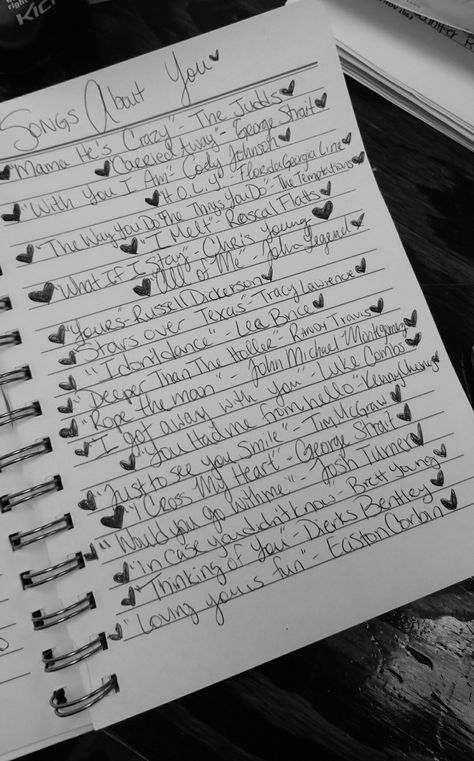 KIC
Songs About You
"Mama He's Crazy" - The Judds
"Carried Away" - George Strait
"With You I Am" - Cody Johnson
"H.O.L.Y" - Florida Georgia Line
"The Way You Do The Things You Do" - The Temptations
"I Melt" - Rascal Flats
"What If I Stay" - Chris Young
"All of Me" - John Legend
"Yours" - Russell Dickerson
"Stars over Texas" - Tracy Lawrence
"I don't dance" - Lee Brice
"Deeper Than The Holler" - Randy Travis
"Rope the moon" - John Michael Montgomery
"I got away with you" - Luke Combs
"You Had me from hello" Kenny Chesney
"Just to see you Smile" - Tim McGraw
"I Cross My Heart" - George Strait
"Would you go with me" - Josh Turner
"In case you didn't know - Brett Young
"Thinking of You" - Dierks Bentley
"Loving you is fun" - Easton Corbin